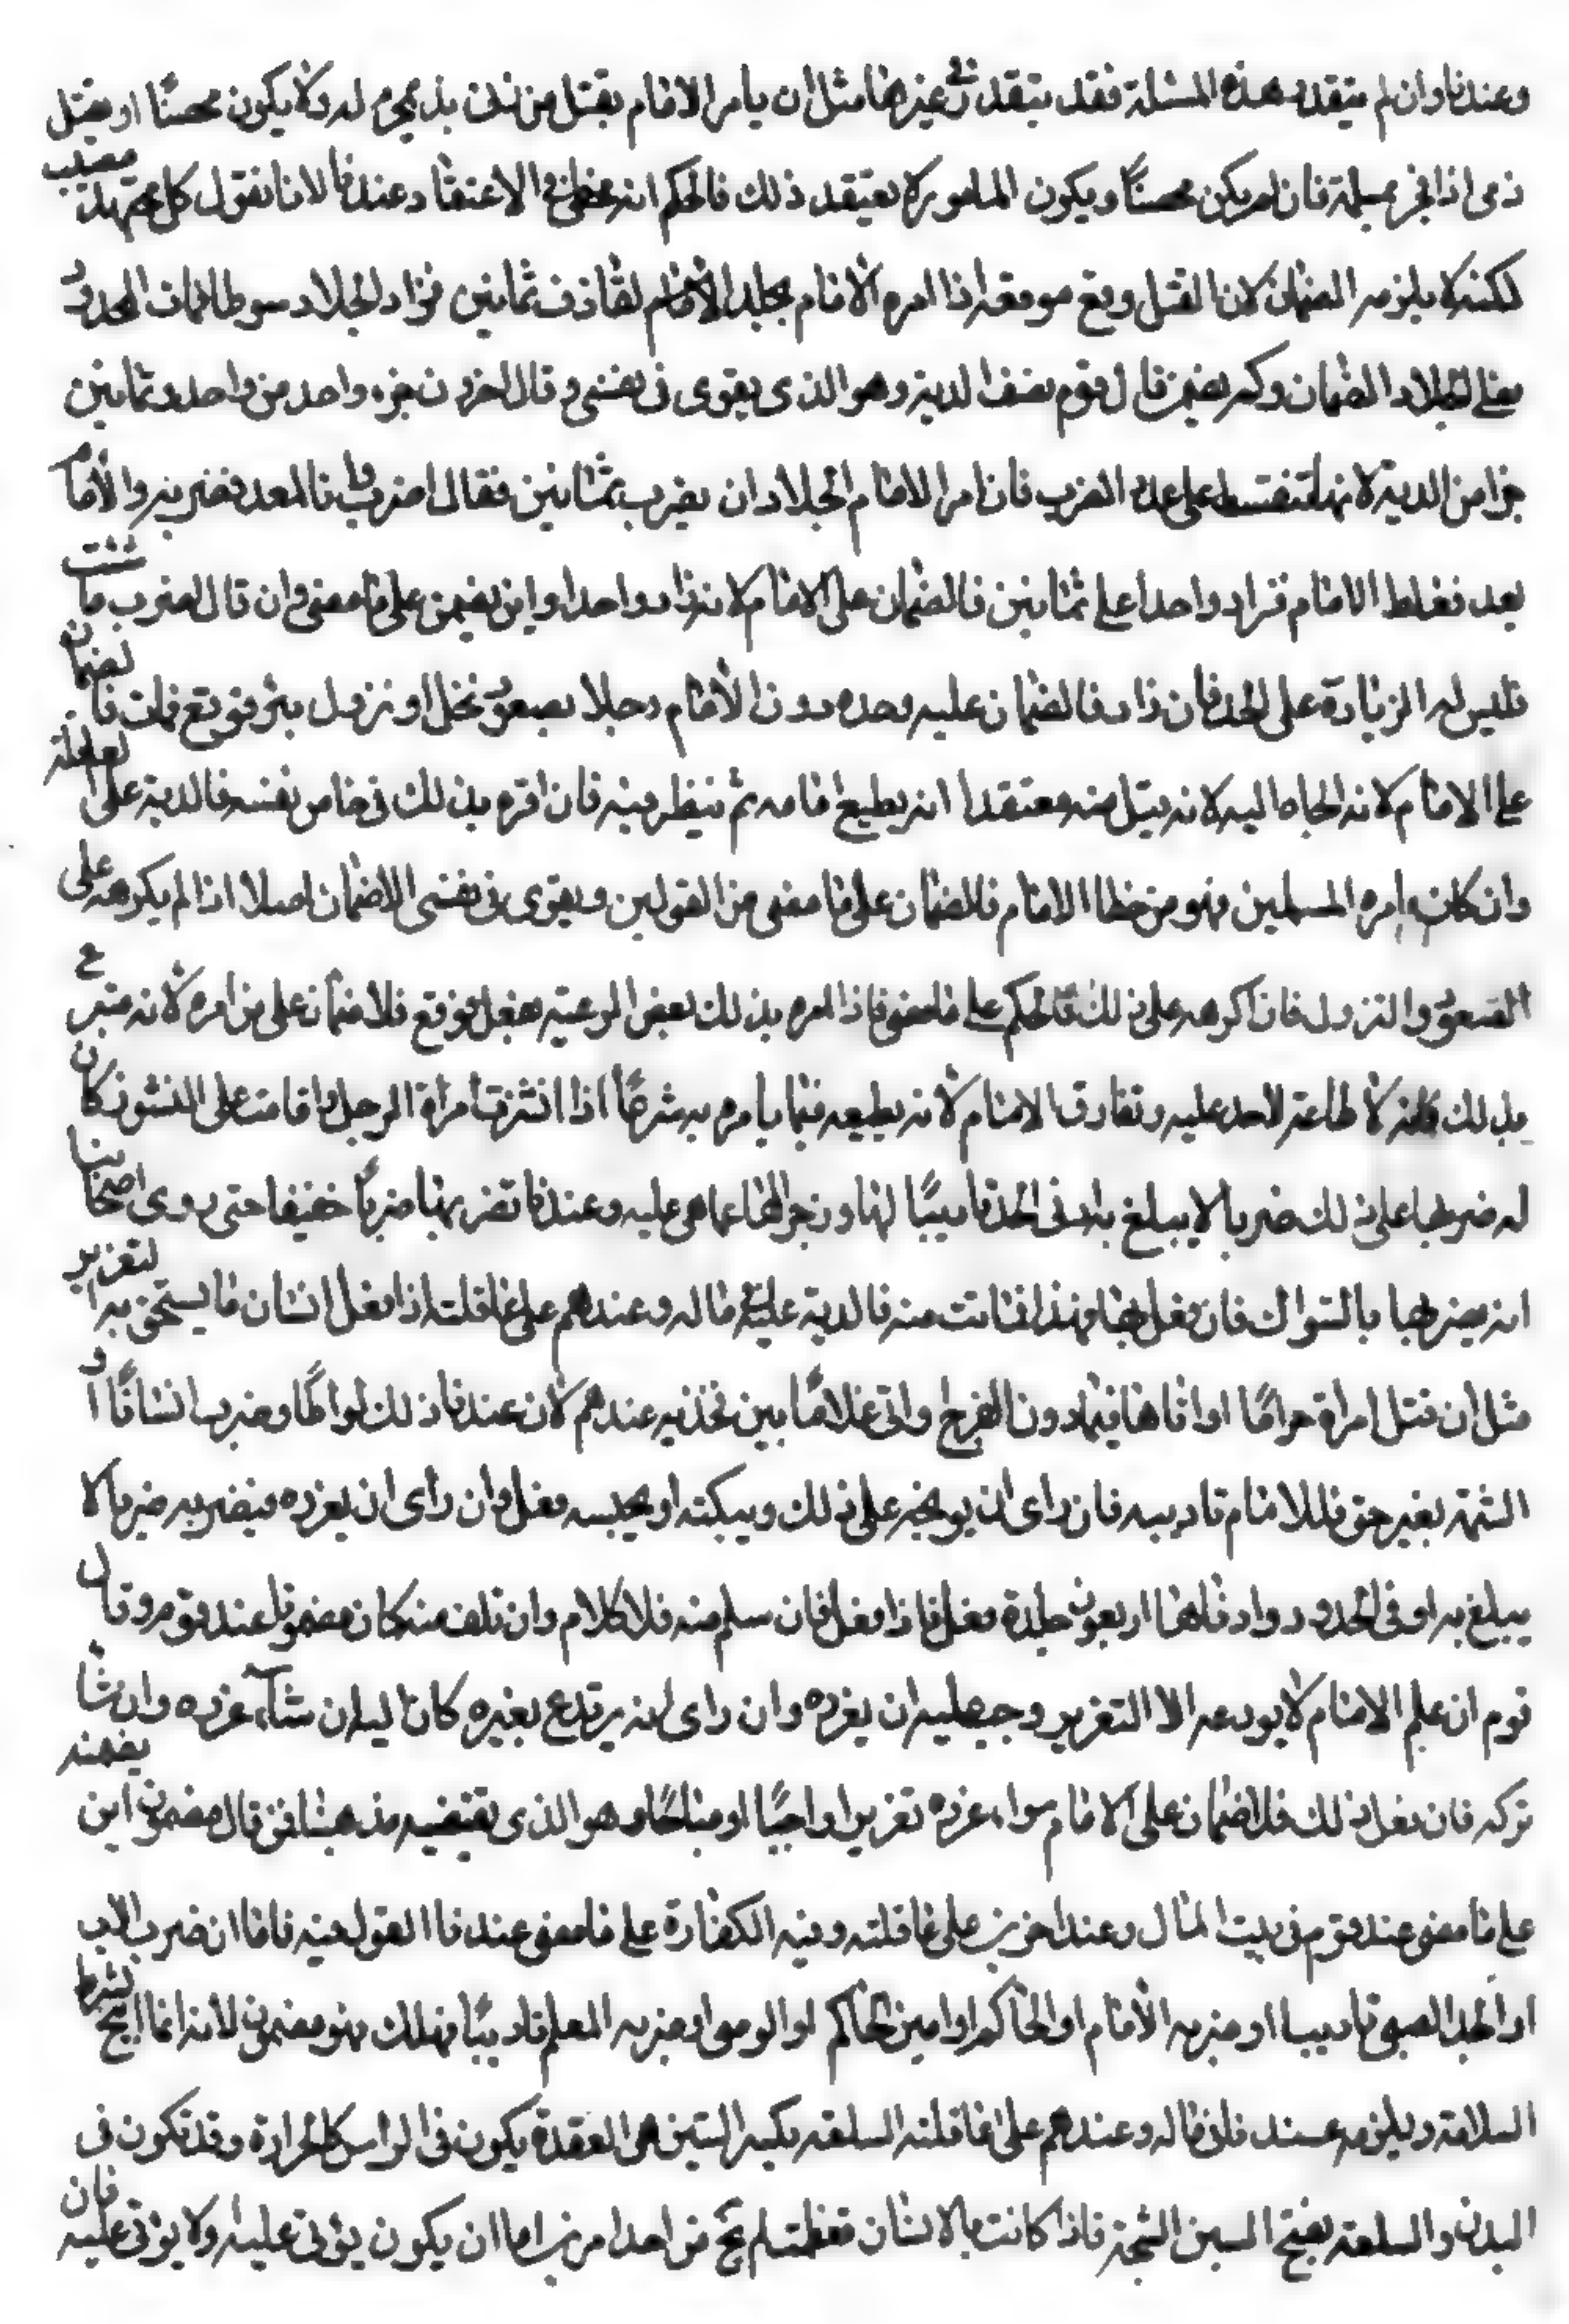 وعندنا وان لم يتقدر هذه المسئلة فقد يتقدر في غيرها مثل ان يامر الامام بقتل من زنى بذي محرم له ولا يكون محصنا او بقتل
ذمى اذا فجر بمسلمة فان لم يكن محصنا ويكون المامور لا يعتقد ذلك فالحكم انه مخطئ في الاعتقاد عندنا لانا نقول كل مجتهد مصيب
لكنه لا يلزمه الضمان لان القتل وقع موقعه اذا امره الامام بجلد القاذف ثمانين فزاد الجلاد سوطا فمات المحدود
فعلى الجلاد الضمان وكم يضمن قال قوم نصف الدية وهو الذى يقوى في نفسي وقال اخرون جزء واحد من واحد وثمانين
جزا من الدية لانها تتقسط على عدد الضرب فان امر الامام الجلاد ان يضرب ثمانين فقال اضرب وانا اعد فضربه والامام
يعد فغلط الامام فزاد واحدا على ثمانين فالضمان على الامام لانه زاد واحدا واين يضمن على ما مضى وان قال اضرب ما شئت
فليس له الزيادة على الحد فان زاد فالضمان عليه وحده دون الامام رجلا يصعد نخلا او نزول بئر فوقع فمات فالضمان
على الامام لانه الجاه اليه لانه يقبل منه معتقدا انه يطيع امامه ثم ينظر فيه فان امره بذلك في خاص نفسه فالدية على العاقلة
وان كان امره المسلمين فهو من خطا الامام فالضمان على ما مضى من القولين ويقوى في نفسي الا ضمان اصلا اذا لم يكرهه على
الصعود والنزول فان اكرهه على ذلك فالحكم على ما مضى فاذا امره بذلك بعض الرعية ففعل فوقع فلا ضمان على من امره لانه متبرع
بذلك فانه لا طاعة لاحد عليه وتفارق الامام لانه يطيعه فيما يامره به شرعا اذا نشزت امراة الرجل واقامت على النشوز كان
له ضربها على ذلك ضربا لا يبلغ به ادنى الحد تاديبا لها وزجرا لها عما هى عليه وعندنا تضربها ضربا خفيفا حتى روى اصحابنا
انه يضربها بالسواك فان فعل بها فهذا فماتت منه فالدية عليه في ماله وعندهم على عاقلته اذا فعل انسان ما يستحق به التعزير
مثل ان قبل امراة حراما او اتاها فيما دون الفرج او اتى غلاما بين فخذيه عندهم لان عندنا ذلك لواطا او ضرب انسانا او
شتمه بغير حق فللامام تاديبه فان راى ان يوبخه على ذلك ويبكته او يحبسه فعل وان راى ان يعزره فيضربه ضربا لا
يبلغ به ادنى الحدود وادناها اربعون جلدة فعل فاذا فعل فان سلم منه فلا كلام وان تلف منه كان مضمونا عند قوم وقال
قوم ان علم الامام لا يردعه الا التعزير وجب عليه ان يعزره وان راى انه يرتدع بغيره كان اليه ان شاء عزره وان شاء
تركه فان فعل ذلك فلا ضمان على الامام سواء عزره تعزيرا واجبا او مباحا وهو الذى يقتضيه مذهبنا فمن قال مضمون اين يضمنه
على ما مضى عند قوم في بيت المال وعند اخرين على عاقلته وفيه الكفارة على ما مضى عندنا القول فيه فاما ان ضرب الاب
او الجد الصبى تاديبا او ضربه الامام او الحاكم او امين الحاكم او الوصى او ضربه المعلم تاديبا فهلك فهو مضمون لانه انما ابيح بشرط
السلامة ويلزمه عندنا في ماله وعندهم على عاقلته السلعة بكسر السين هى العقدة يكون في الراس كالجرازة وقد تكون في
البدن والسلعة بفتح السين الشجة فاذا كانت بالانسان فقطعت لم يخ من احد امرين اما ان يكون يؤتى عليه ولا يؤتى عليه فان